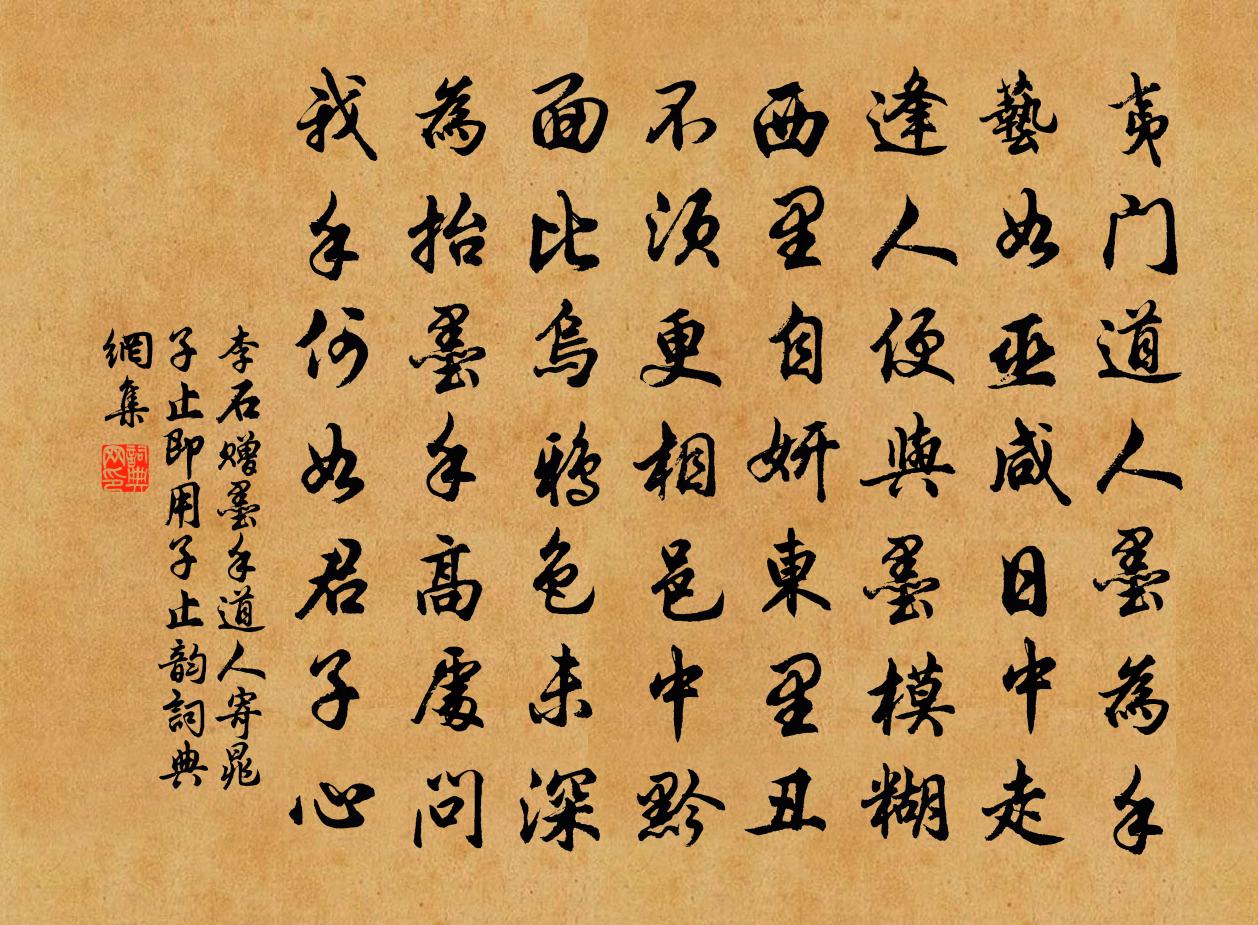 夷门道人墨為手
藝如巫咸日中走
逢人便與墨模糊
西里自妍東里丑
不須更相邑中黔
面比烏鴉色未深
為抬墨手高處問
我手何如君子心
李石赠墨手道人寄晁
子止即用子止韵詞典
網集
詞典网印